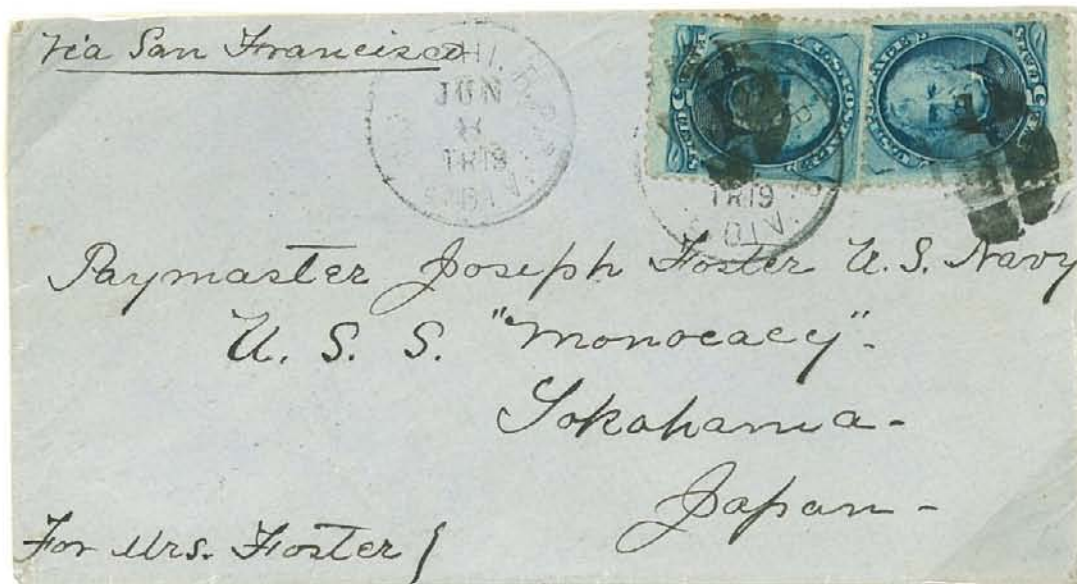 Via San Francisco
JUN
TR19
TR19
DIV.
Paymaster Joseph Foster U.S. Navy
U. S. S. "Monocacy".
Yokohama-
Japan-
For Mrs. Foster